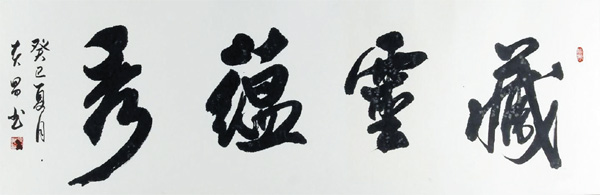 藏靈蘊秀
癸巳夏月
昌书